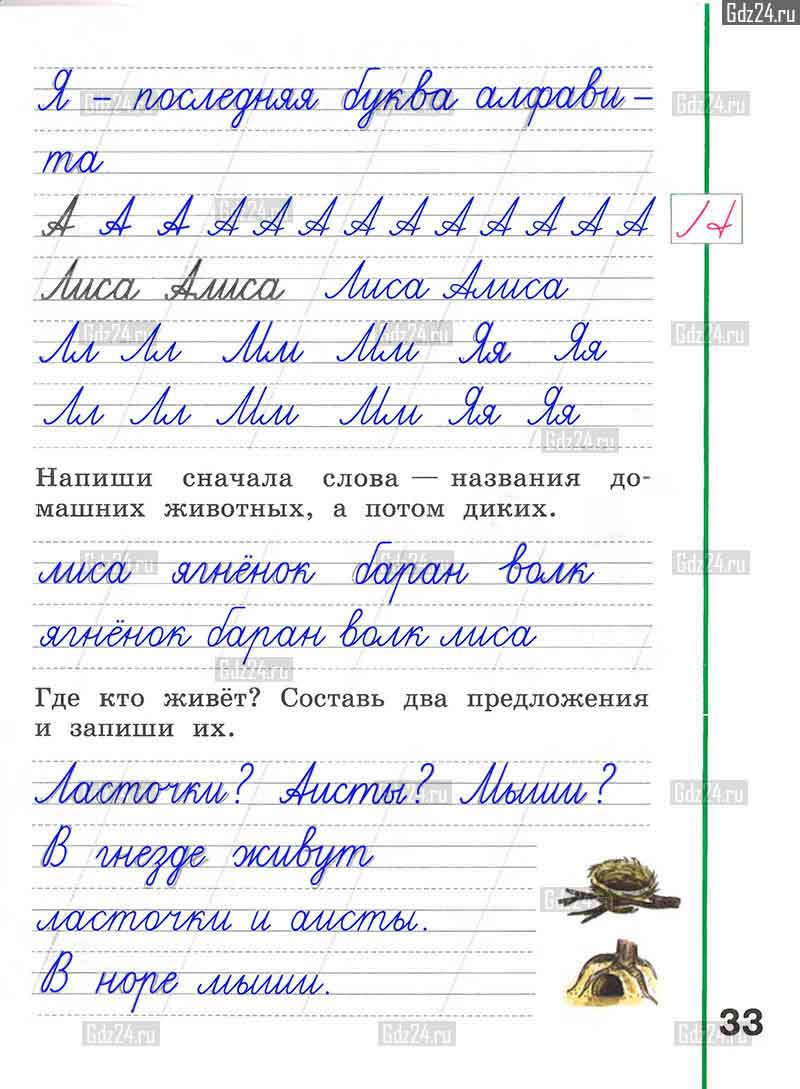 Gdz24.ru
Я – последняя буква алфави –
та
А А А А А А А А А А А А А А
Лиса Алиса Лиса Алиса
Лл Лл Мм Мм Яя Яя
Лл Лл Мм Мм Яя Яя
Напиши сначала слова — названия до-
машних животных, а потом диких.
лиса ягнёнок баран волк
ягнёнок баран волк лиса
Где кто живёт? Составь два предложения
и запиши их.
Ласточки? Аисты? Мыши?
В гнезде живут
ласточки и аисты.
В норе мыши.
33